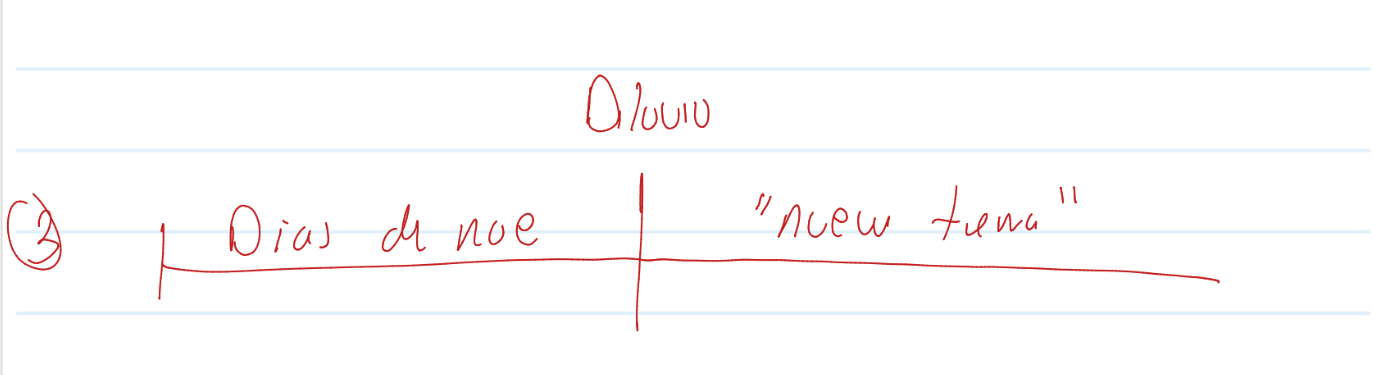 Diluvio
③ Dias de noe "nueva tierra"